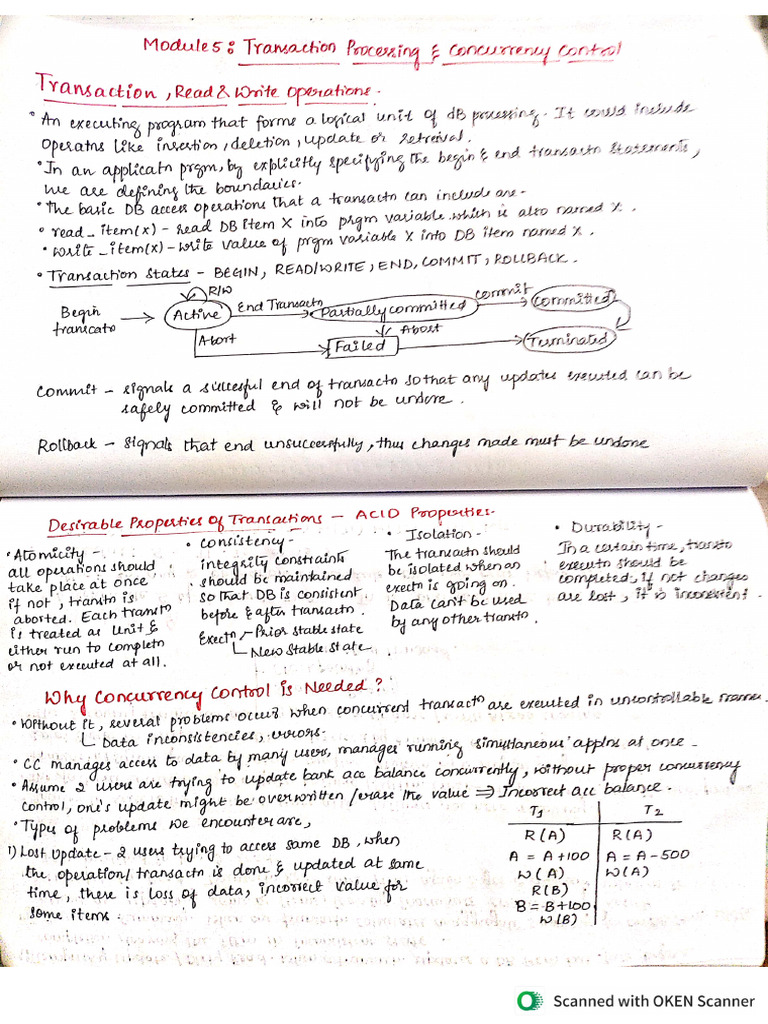 Module 5: Transaction Processing & Concurrency Control
Transaction, Read & Write operations.
• An executing program that forms a logical unit of dB processing. It could include
operatns like insertion, deletion, update or retreival.
• In an applicatn prgm, by explicitly specifying the begin & end transactn statements,
we are defining the boundaries.
• The basic DB access operations that a transactn can include are-
• read_item(x) - read DB item X into prgm variable which is also named X.
• write_item(x) - write value of prgm variable X into DB item named X.
• Transaction States - BEGIN, READ/WRITE, END, COMMIT, ROLLBACK.
R/W
Begin
transcatn
Active
End Transactn
Partially committed
commit
committed
Abort
Abort
Failed
Terminated
Commit - signals a succesful end of transactn so that any updates executed can be
safely committed & will not be undone.
Rollback - signals that end unsuccessfully, thus changes made must be undone
Desirable Properties of Transactions - ACID Properties-
• Atomicity -
all operations should
take place at once
if not, transtn is
aborted. Each transtn
is treated as unit &
either run to completn
or not executed at all.
• consistency-
integrity constraints
should be maintained
so that DB is consistent
before & after transactn.
Exectn - Prior stable state
New stable state
• Isolation-
The transactn should
be isolated when an
exectn is going on.
Data can't be used
by any other transtn.
• Durability-
In a certain time, transtn
executn should be
completed, if not changes
are lost, it is inconsistent.
Why Concurrency Control is Needed?
• Without it, several problems occur when concurrent transactn are executed in uncontrollable manner.
Data inconsistencies, errors.
• CC manages access to data by many users, manages running simultaneous applns at once.
• Assume 2 users are trying to update bank acc balance concurrently, without proper concurrency
control, one's update might be overwritten / erase the value ⇒ Incorrect acc balance.
• Types of problems we encounter are,
1) Lost Update - 2 users trying to access same DB, when
the operation/transactn is done & updated at same
time, there is loss of data, incorrect value for
some items.
T1 T2
R(A) R(A)
A = A+100 A = A-500
W(A) W(A)
R(B)
B = B+100
W(B)
Scanned with OKEN Scanner